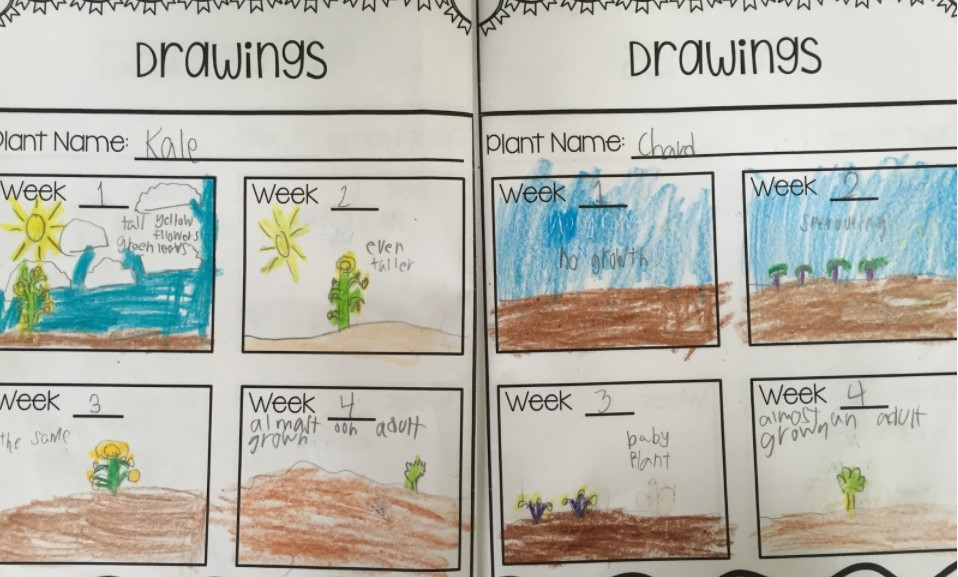 Drawings
Plant Name: Kale
Week 1
tall yellow
flowers
green leevs
Week 2
even
taller
Week 3
the same
Week 4
almast ooh adult
grown
Drawings
Plant Name: Chard
Week 1
no growth
Week 2
Sprouting
Week 3
baby
Plant
Week 4
almost an adult
grown